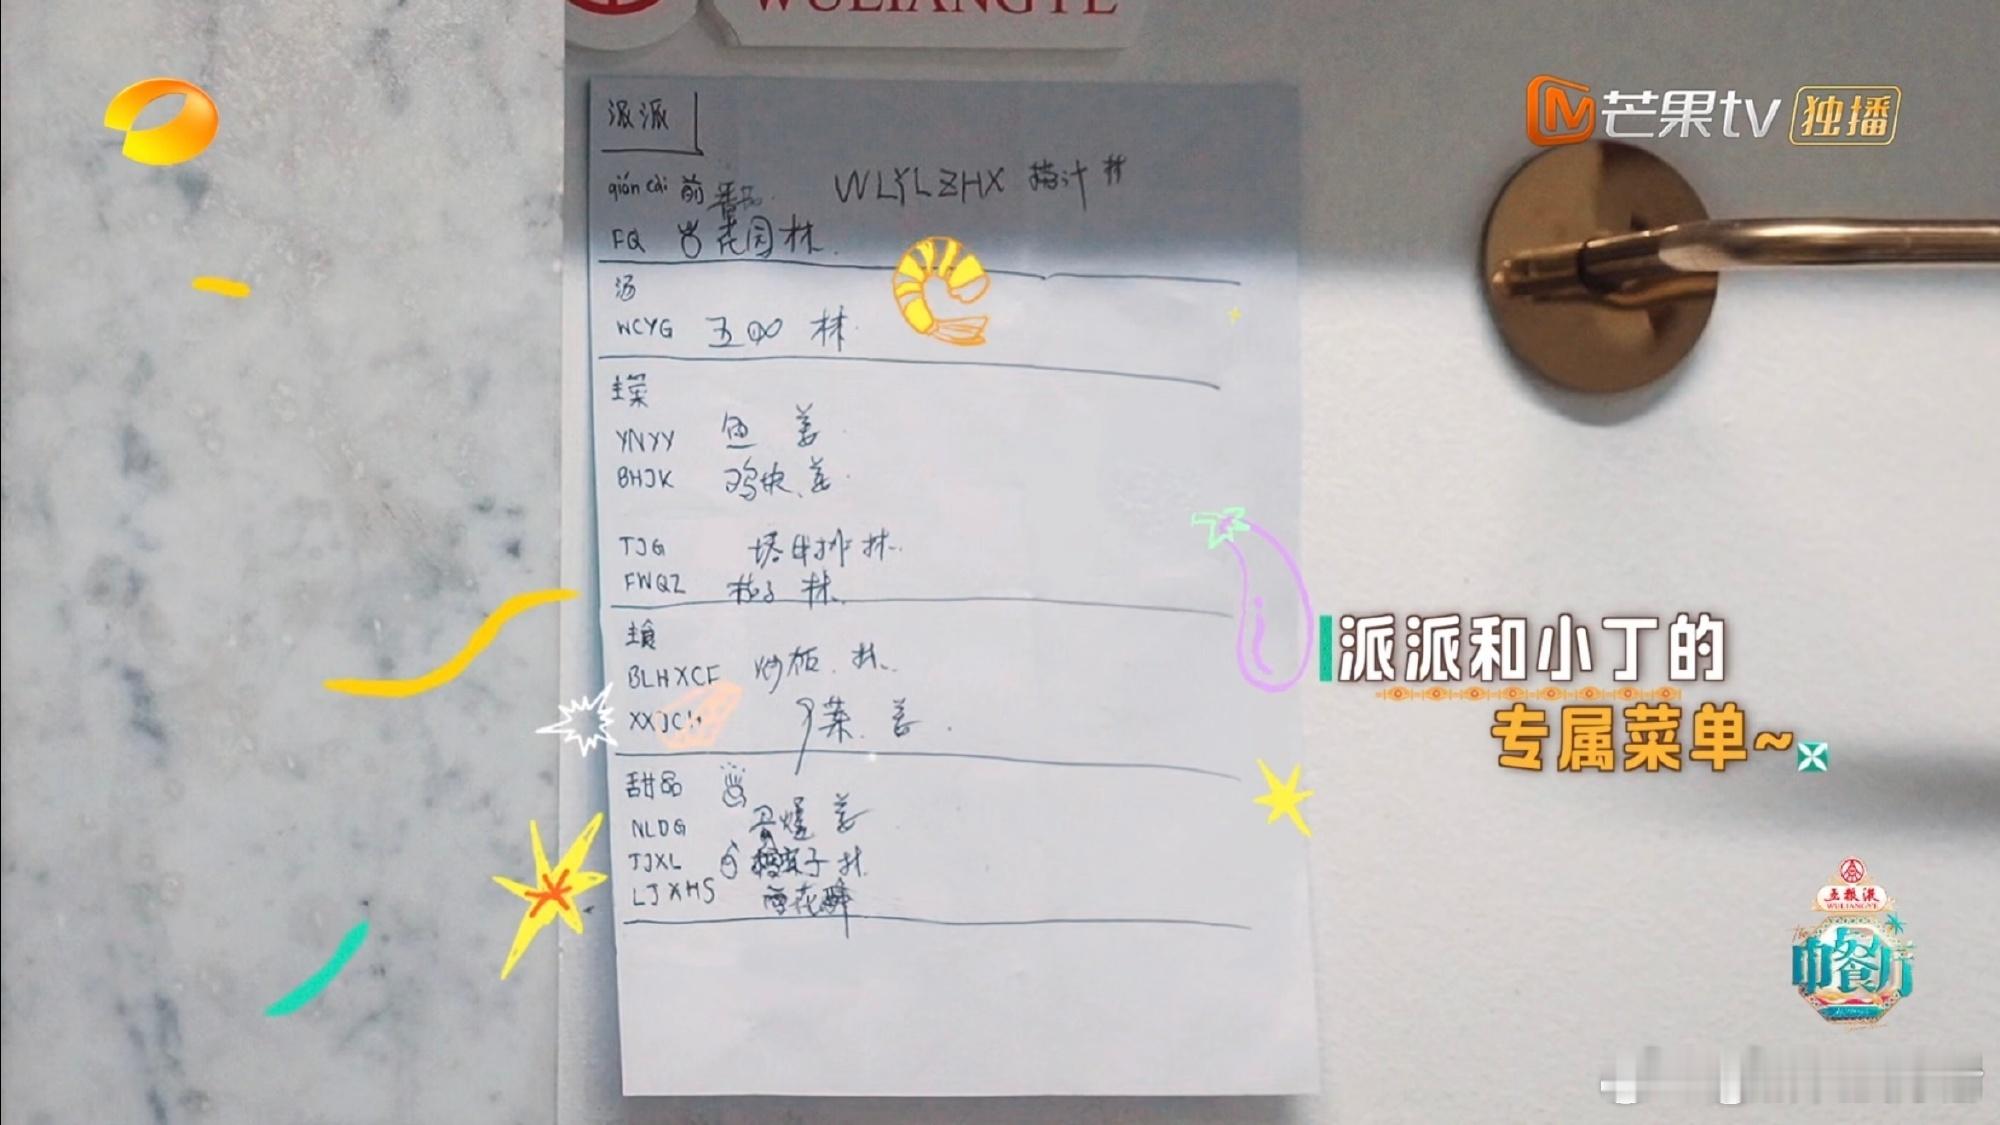 WULIANGYE
芒果tv 独播
派派
qián cài 前 番茄 WLYLZHX 梅汁 林
FQ 花园 林
汤
WCYG 五 林
主菜
YNYY 鱼 姜
BHJK 鸡块 姜
TJG 塔 牛排 林
FWQZ 茄子 林
主食
BLHXCF 炒饭 林
XXJC 菜 姜
甜品
NLDG 蛋糕 姜
TJXL 子 林
LJXHS 雪花酥
派派和小丁的
专属菜单~
五粮液
WULIANGYE
中餐厅